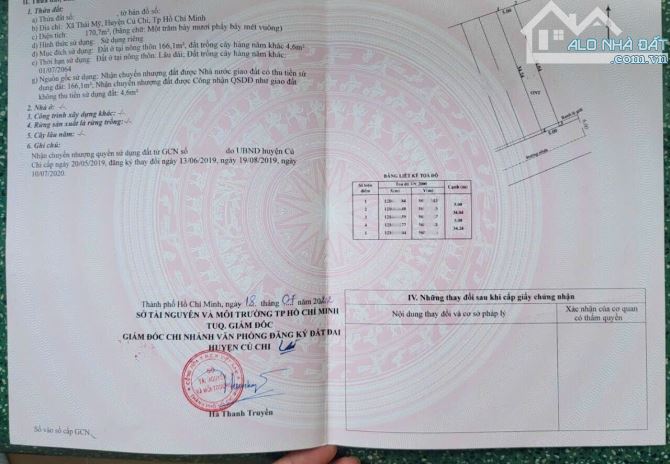 1. Thửa đất:
a) Thửa đất số: , tờ bản đồ số:
b) Địa chỉ: Xã Thái Mỹ, Huyện Củ Chi, Tp Hồ Chí Minh
c) Diện tích: 170,7m², (bằng chữ: Một trăm bảy mươi phẩy bảy mét vuông)
d) Hình thức sử dụng: Sử dụng riêng
đ) Mục đích sử dụng: Đất ở tại nông thôn 166,1m², đất trồng cây hàng năm khác 4,6m²
e) Thời hạn sử dụng: Đất ở tại nông thôn: Lâu dài; Đất trồng cây hàng năm khác:
01/07/2064
g) Nguồn gốc sử dụng: Nhận chuyển nhượng đất được Nhà nước giao đất có thu tiền sử
dụng đất: 166,1m², Nhận chuyển nhượng đất được Công nhận QSDĐ như giao đất
không thu tiền sử dụng đất: 4,6m²
2. Nhà ở: -/-
3. Công trình xây dựng khác: -/-
4. Rừng sản xuất là rừng trồng: -/-
5. Cây lâu năm: -/-
6. Ghi chú:
Nhận chuyển nhượng quyền sử dụng đất từ GCN số do UBND huyện Củ
Chi cấp ngày 20/05/2019, đăng ký thay đổi ngày 13/06/2019, ngày 19/08/2019, ngày
10/07/2020.
Thành phố Hồ Chí Minh, ngày 18 tháng
SỞ TÀI NGUYÊN VÀ MÔI TRƯỜNG TP HỒ CHÍ MINH
TUQ. GIÁM ĐỐC
GIÁM ĐỐC CHI NHÁNH VĂN PHÒNG ĐĂNG KÝ ĐẤT ĐAI
HUYỆN CỦ CHI
SỞ
TÀI NGUYÊN
VÀ MÔI TRƯỜNG
Hà Thanh Truyền
Số vào sổ cấp GCN:
ALO NHÀ ĐẤT
5.00
34.34
ONT
5.00
6.00
BẢNG LIỆT KÊ TOẠ ĐỘ
Số hiệu điểm
Toạ độ VN 2000
Cạnh (m)
X(m)
Y(m)
1
2
3
4
5.00
5.00
34.34
IV. Những thay đổi sau khi cấp giấy chứng nhận
Nội dung thay đổi và cơ sở pháp lý
Xác nhận của cơ quan
có thẩm quyền